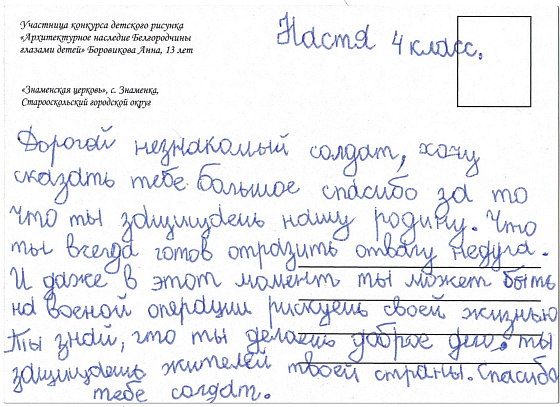 Участница конкурса детского рисунка
«Архитектурное наследие Белгородчины
глазами детей» Боровикова Анна, 13 лет
«Знаменская церковь», с. Знаменка,
Старооскольский городской округ
Настя 4 класс.
Дорогой незнакомый солдат, хочу
сказать тебе большое спасибо за то
что ты защищаешь нашу родину. Что
ты всегда готов отразить отвагу недуга.
И даже в этот момент ты может быть
на военой операции рискуешь своей жизнью
Ты знай, что ты делаешь доброе дело, ты
защищаешь жителей твоей страны. Спасибо
тебе солдат.